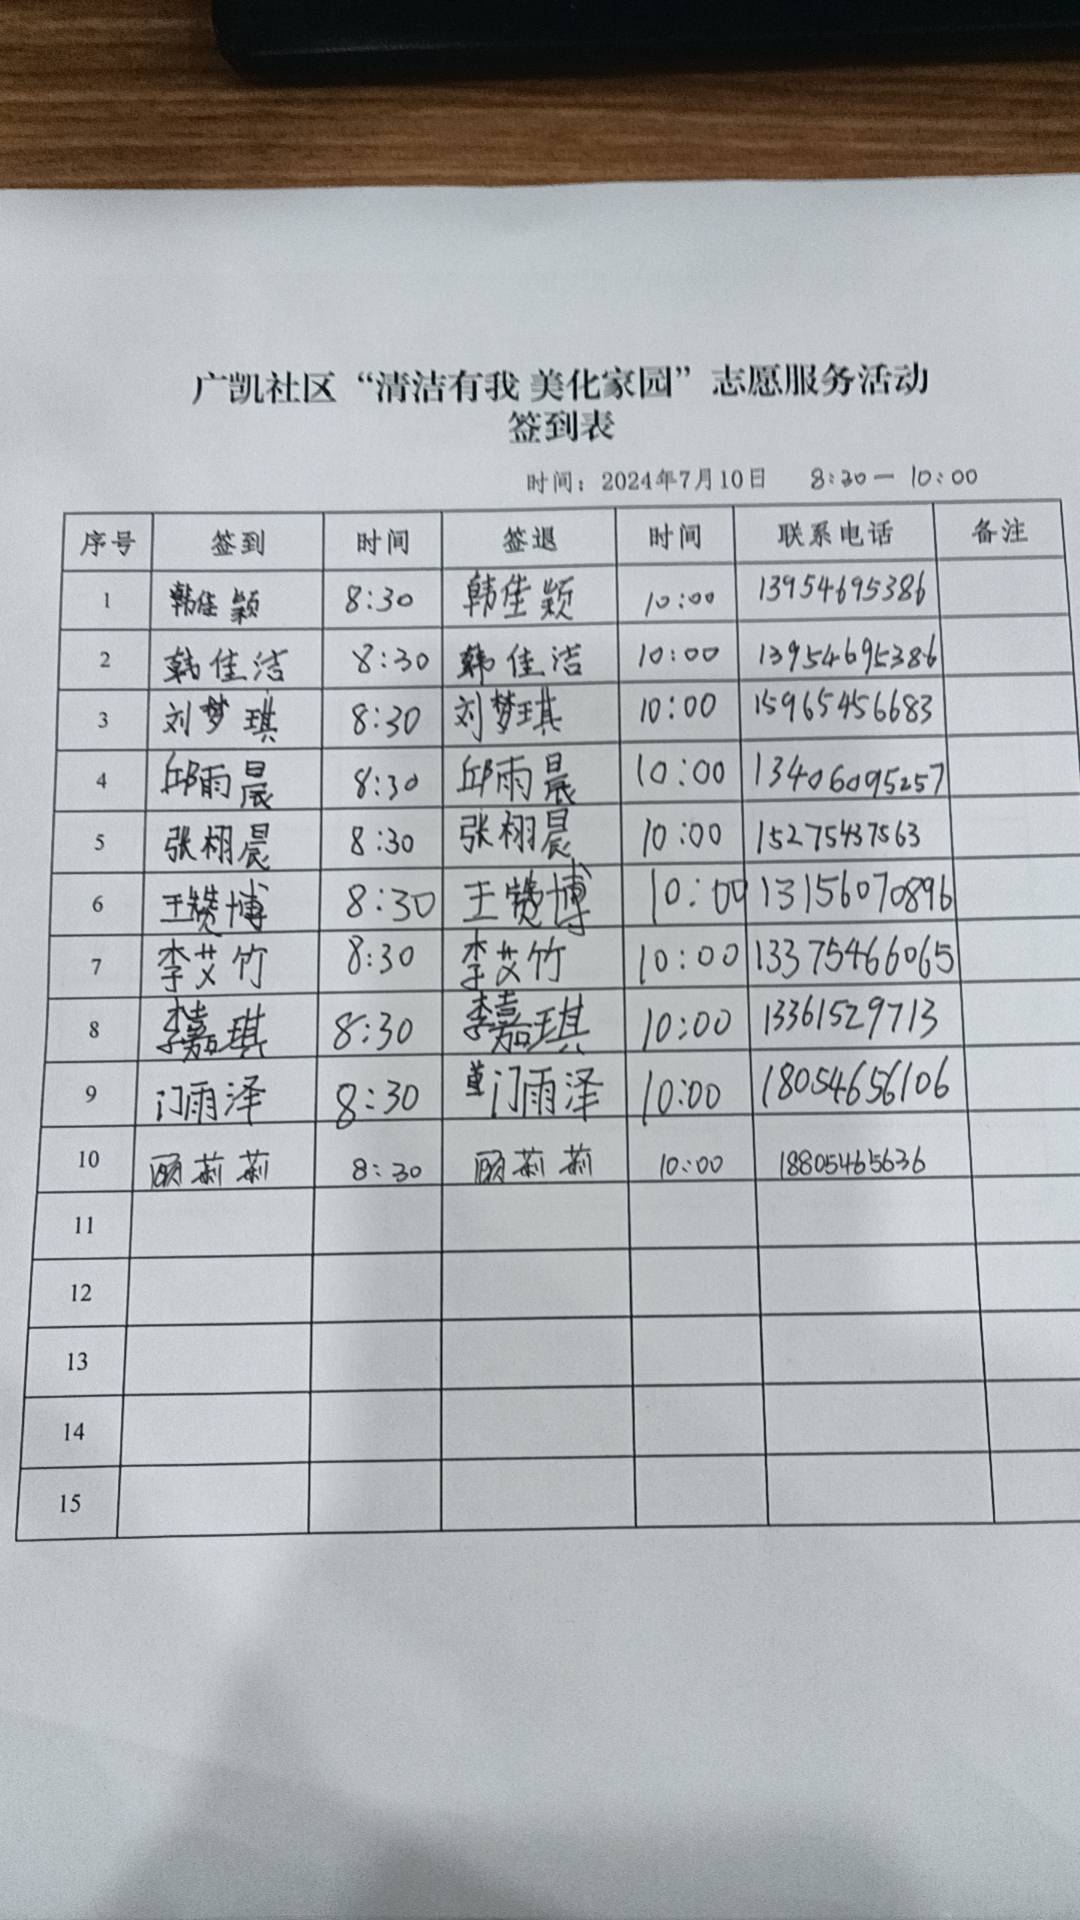 广凯社区“清洁有我 美化家园”志愿服务活动
签到表
时间：2024年7月10日 8:30—10:00
序号 签到 时间 签退 时间 联系电话 备注
1 韩佳颖 8:30 韩佳颖 10:00 13954695386
2 韩佳洁 8:30 韩佳洁 10:00 13954695386
3 刘梦琪 8:30 刘梦琪 10:00 15965456683
4 邱雨晨 8:30 邱雨晨 10:00 13406095257
5 张栩晨 8:30 张栩晨 10:00 15275437563
6 王赞博 8:30 王赞博 10:00 13156070896
7 李艾竹 8:30 李艾竹 10:00 13375466065
8 李嘉琪 8:30 李嘉琪 10:00 13361529713
9 门雨泽 8:30 门雨泽 10:00 18054656106
10 顾莉莉 8:30 顾莉莉 10:00 18805465636
11
12
13
14
15